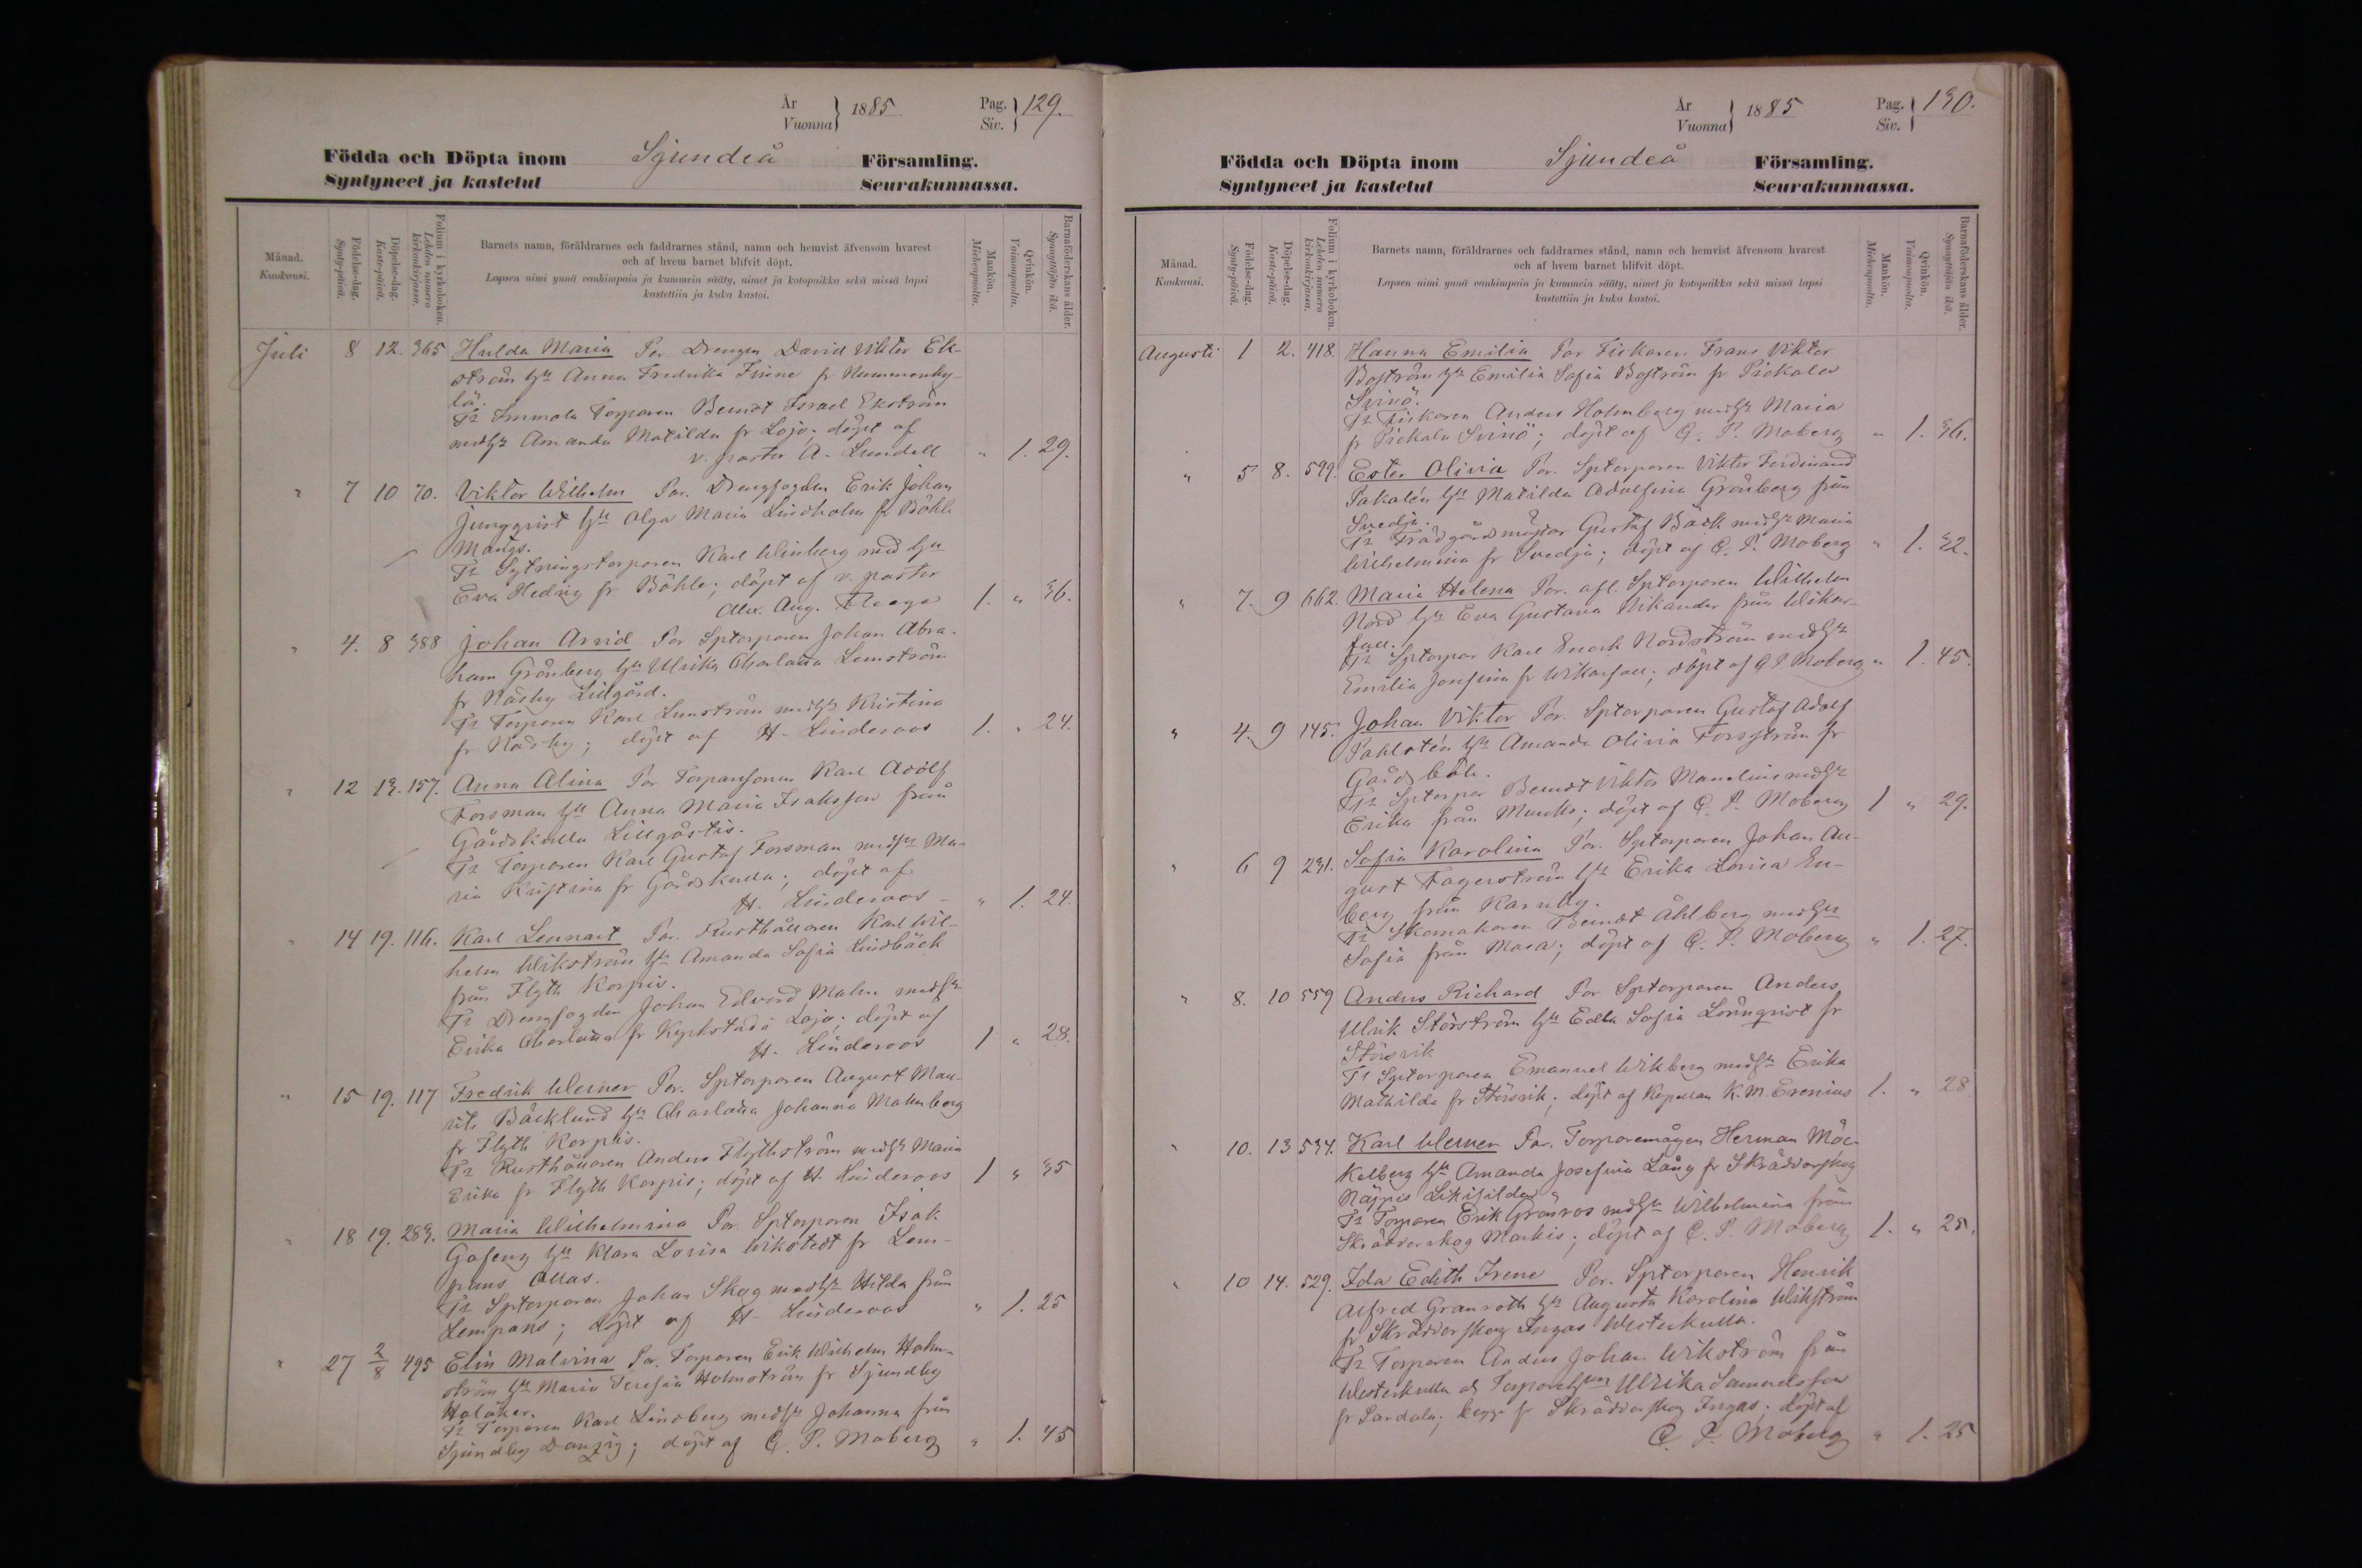 År
Vuonna } 1885
Pag.
Siv. } 129.
Födda och Döpta inom Sjundeå Församling.
Syntyneet ja kastetut Seurakunnassa.
Månad.
Kuukausi.
Födelse-dag.
Synty-päivä.
Döpelse-dag.
Kaste-päivä.
Folium i kyrkoboken.
Lehden numero kirkonkirjassa.
Barnets namn, föräldrarnes och faddrarnes stånd, namn och hemvist äfvensom hvarest
och af hvem barnet blifvit döpt.
Lapsen nimi ynnä vanhimpain ja kummein sääty, nimet ja kotopaikka sekä missä lapsi
kastettiin ja kuka kastoi.
Mankön.
Miehenpuolta.
Qvinkön.
Vaimonpuolta.
Barnaföderskans ålder.
Synnyttäjän ikä.
Juli 8 12. 365 Hulda Maria För. Drengen David Viktor Ek-
ström hu Anna Fredrika Finne fr Nummenky-
lä.
Fr Inmola Torparen Berndt Israel Ekström
med hu Amanda Matilda fr Lojo; döpt af
v. pastor A. Lundell " 1. 29.
" 7 10 70. Viktor Wilhelm För. Drengfogden Erik Johan
Jungqvist hu Olga Maria Lindholm fr Böhle
Mangs.
Fr Sytningstorparen Karl Winberg med hu
Eva Hedvig fr Böhle; döpt af v. pastor
Alex. Aug. 1. " 36.
" 4. 8 388 Johan Arvid För Sptorparen Johan Abra-
ham Grönberg hu Ulrika Charlotta Lemström
fr Näsby Lillgård.
Fr Torparen Karl Lemström med hu Kristina
fr Näsby; döpt af H. Linderoos 1. " 24.
" 12 13. 157. Anna Alina För Torparesonen Karl Adolf
Forsman hu Anna Maria Isaksson från
Gårdskulla Lillgöstis.
Fr Torparen Karl Gustaf Forsman med hu Ma-
ria Kristina fr Gårdskulla; döpt af
H. Linderoos - " 1. 24.
" 14 19. 116. Karl Lennart För. Rusthållaren Karl Wil-
helm Wikström hu Amanda Sofia Lindbäck
från Flyth Korpis.
Fr Drengfogden Johan Edvard Malm med hu
Erika Charlotta fr Kyrkstad i Lojo; döpt af
H. Linderoos 1 " 28.
" 15 19. 117 Fredrik Werner För. Sptorparen August Mau-
rits Bäcklund hu Charlotta Johanna Malmberg
fr Flyth Korpis.
Fr Rusthållaren Anders Flythström med hu Maria
Erika fr Flyth Korpis; döpt af H. Linderoos 1 " 35
" 18 19. 283. Maria Wilhelmina För. Sptorparen Isak
Gofeng hu Klara Lovisa Wikstedt fr Lem-
pans Allas.
Fr Sptorparen Johan Skog med hu Hilda från
Lempans; döpt af H. Linderoos " 1. 25
" 27 2/8 495 Elin Malvina För. Torparen Erik Wilhelm Holm-
ström hu Maria Teresia Holmström fr Sjundby
Holåker.
Fr Torparen Karl Lindberg med hu Johanna från
Sjundby Danzig; döpt af C. P. Moberg " 1. 45
År
Vuonna } 1885
Pag.
Siv. } 130.
Födda och Döpta inom Sjundeå Församling.
Syntyneet ja kastetut Seurakunnassa.
Månad.
Kuukausi.
Födelse-dag.
Synty-päivä.
Döpelse-dag.
Kaste-päivä.
Folium i kyrkoboken.
Lehden numero kirkonkirjassa.
Barnets namn, föräldrarnes och faddrarnes stånd, namn och hemvist äfvensom hvarest
och af hvem barnet blifvit döpt.
Lapsen nimi ynnä vanhimpain ja kummein sääty, nimet ja kotopaikka sekä missä lapsi
kastettiin ja kuka kastoi.
Mankön.
Miehenpuolta.
Qvinkön.
Vaimonpuolta.
Barnaföderskans ålder.
Synnyttäjän ikä.
Augusti 1 2. 418. Hanna Emilia För Fiskaren Frans Viktor
Boström hu Emilia Sofia Boström fr Pickala
Svinö.
Fr Fiskaren Anders Holmberg med hu Maria
fr Pickala Svinö; döpt af C. P. Moberg " 1. 36.
" 5 8. 599. Ester Olivia För. Sptorparen Viktor Ferdinand
Pakalén hu Matilda Adolfina Grönberg från
Svedja.
Fr Trädgårdsmästar Gustaf Bäck med hu Maria
Wilhelmina fr Svedja; döpt af C. P. Moberg " 1. 32.
" 7. 9 662. Maria Helena För. afl. Sptorparen Wilhelm
Nord hu Eva Gustava Wikander från Wikar-
fall.
Fr Sptorpar Karl Enock Nordström med hu
Emilia Josefina fr Wikarfall; döpt af C P Moberg " 1. 45.
" 4. 9 145. Johan Viktor För. Sptorparen Gustaf Adolf
Pahlstén hu Amanda Olivia Forsström fr
Gårdsböle.
Fr Sptorpar Berndt Viktor Mandelin med hu
Erika från Munks; döpt af C. P. Moberg 1 " 29.
" 6 9 231. Sofia Karolina För. Sptorparen Johan Au-
gust Fagerström hu Erika Lovisa En-
berg från Karuby.
Fr Skomakaren Berndt Åhlberg med hu
Sofia från Masa; döpt af C. P. Moberg " 1. 27.
" 8. 10 559 Anders Richard För Sptorparen Anders
Ulrik Störström hu Edla Sofia Lönnqvist fr
Störsvik
Fr Sptorparen Emanuel Wikberg med hu Erika
Mathilda fr Störsvik; döpt af Kapellan K. M. Erenius 1. " 28
" 10. 13 534. Karl Werner För. Torparemågen Herman Möc-
kelberg hu Amanda Josefina Lång fr Skräddarskog
Näppis
Fr Torparen Erik Granroos med hu Wilhelmina från
Skräddarskog Markis; döpt af C. P. Moberg 1. " 25.
" 10 14. 529. Ida Edith Irene För. Sptorparen Henrik
Alfred Granroth hu Augusta Karolina Wikström
fr Skräddarskog Ingas Westerkulla.
Fr Torparen Anders Johan Wikström från
Westerkulla o Torparehun Ulrika Samuelsson
fr Sardala; begge fr Skräddarskog Ingas; döpt af
C. P. Moberg " 1. 25